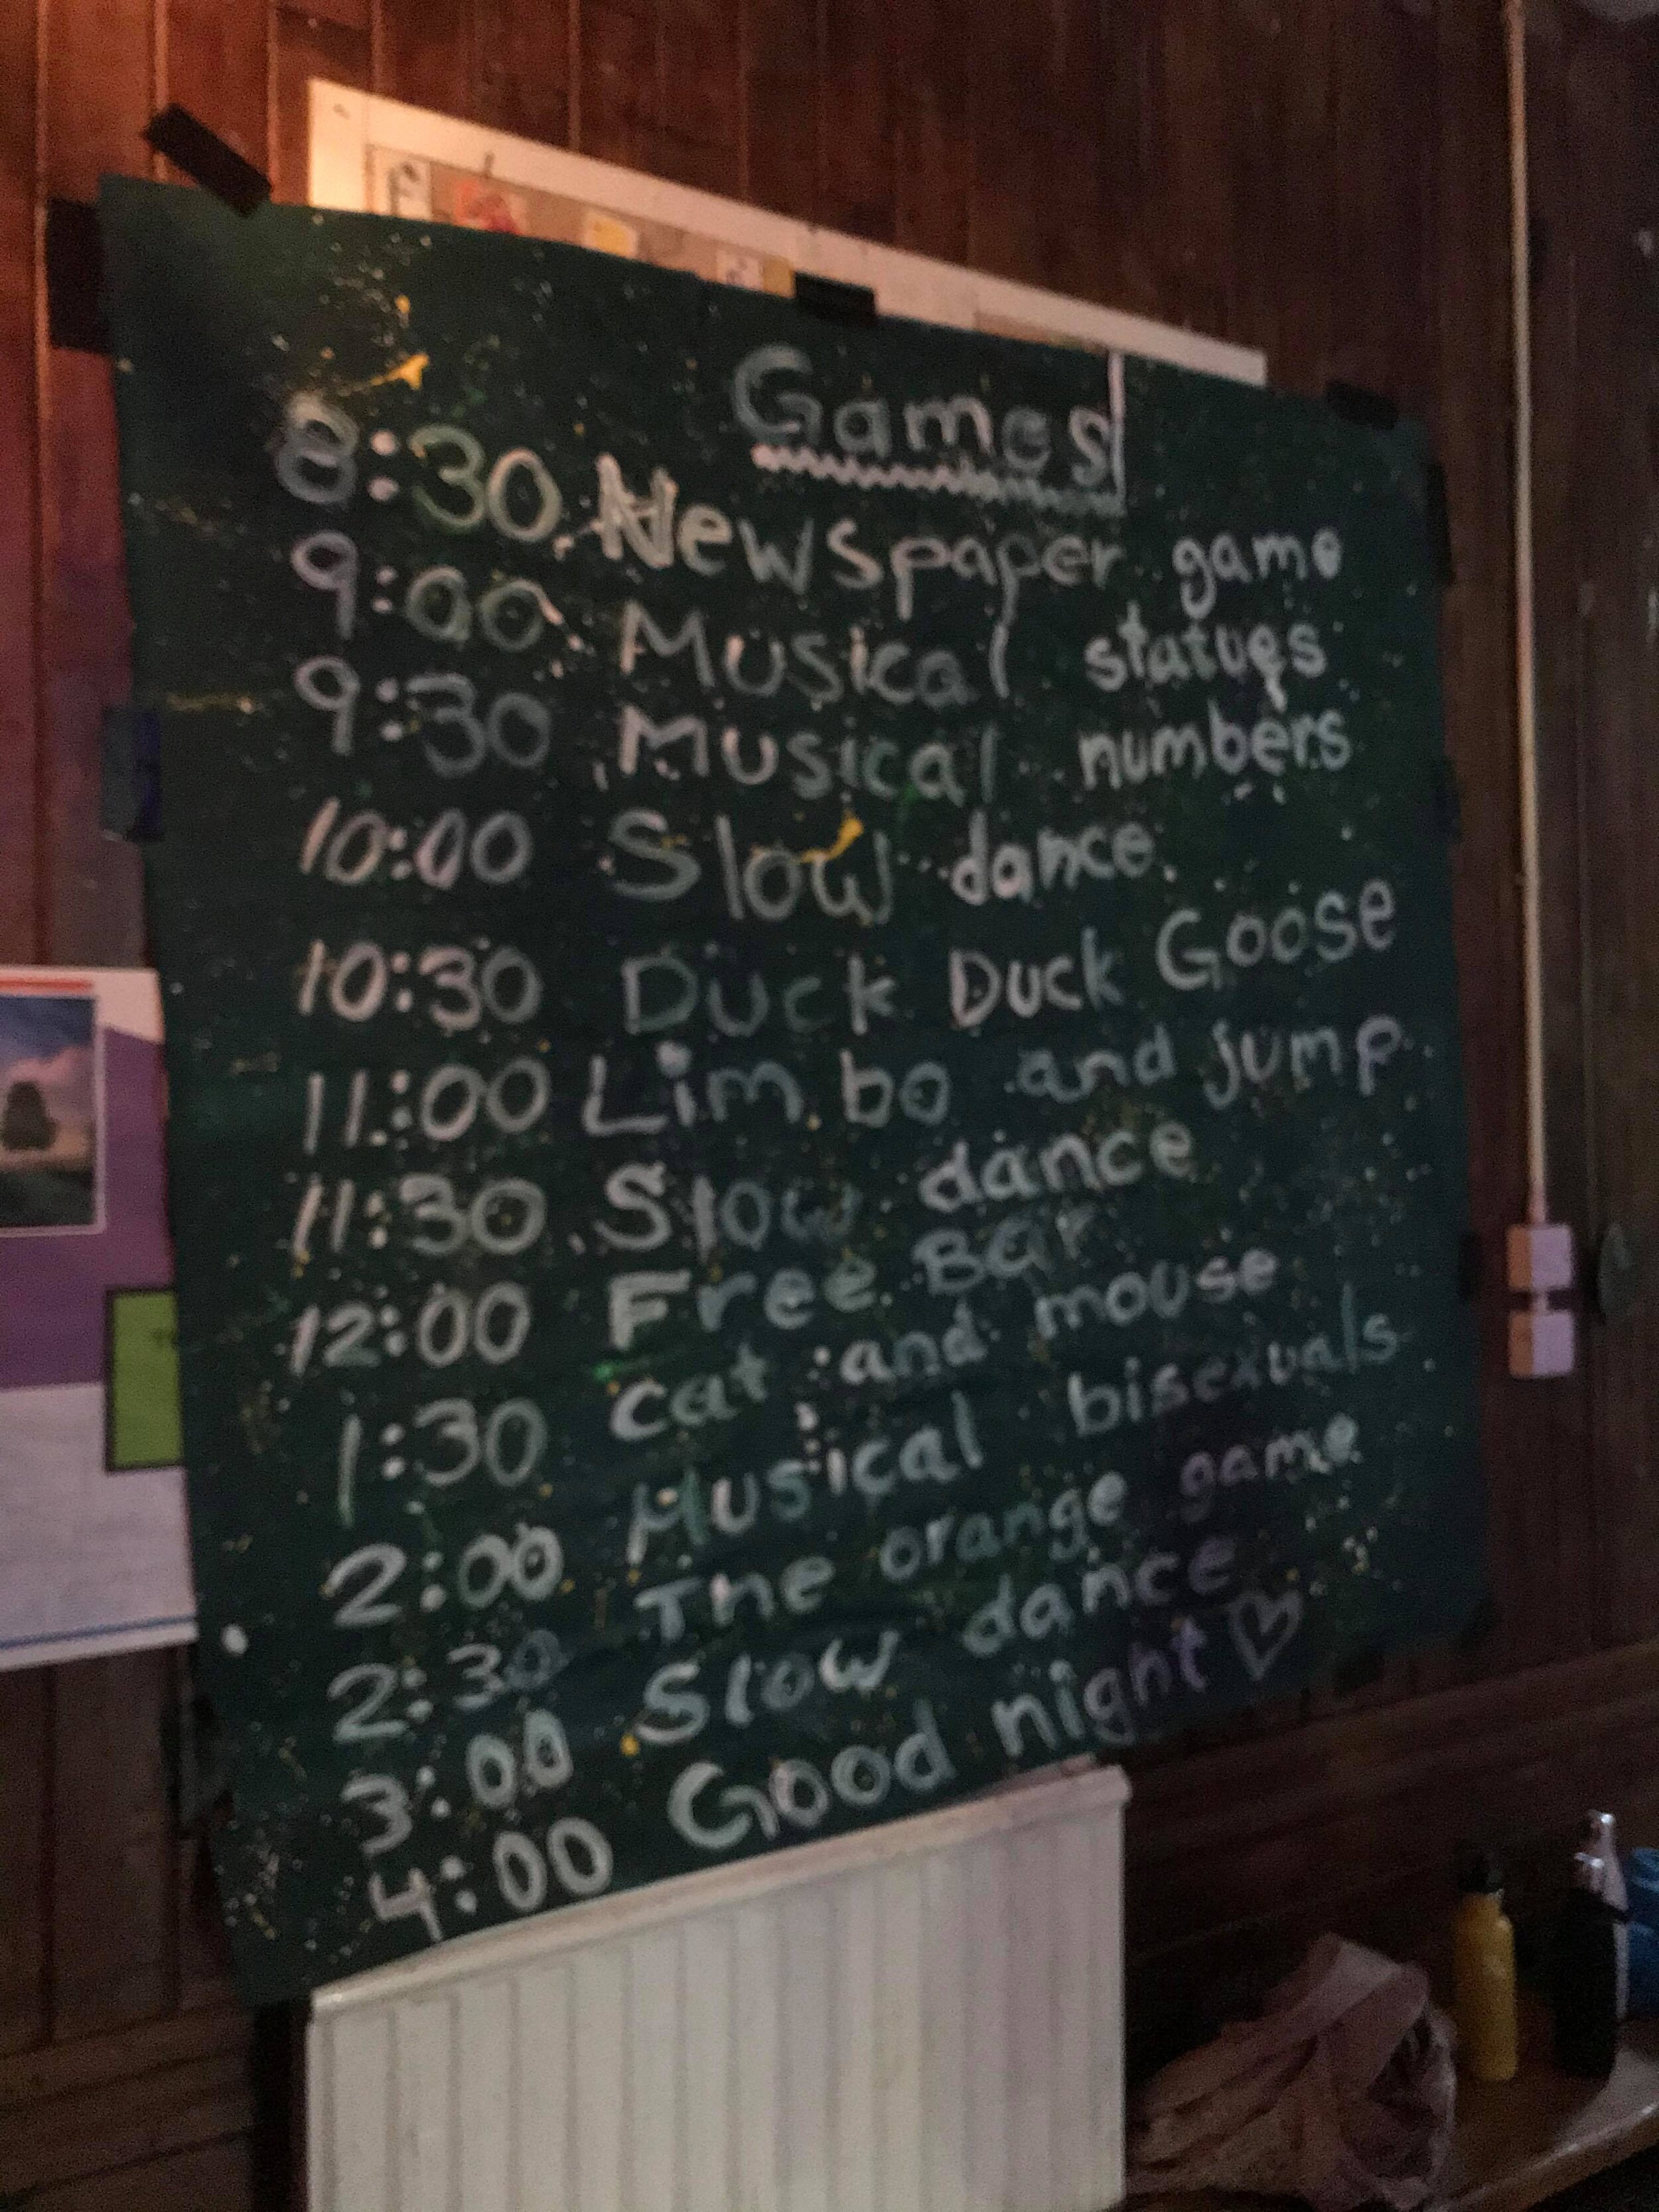 Games
8:30 Newspaper game
9:00 Musical statues
9:30 Musical numbers
10:00 Slow dance
10:30 Duck Duck Goose
11:00 Limbo and jump
11:30 Slow dance
12:00 Free Bar
1:30 cat and mouse
2:00 Musical bisexuals
2:30 The orange game
3:00 Slow dance
4:00 Good night ♡